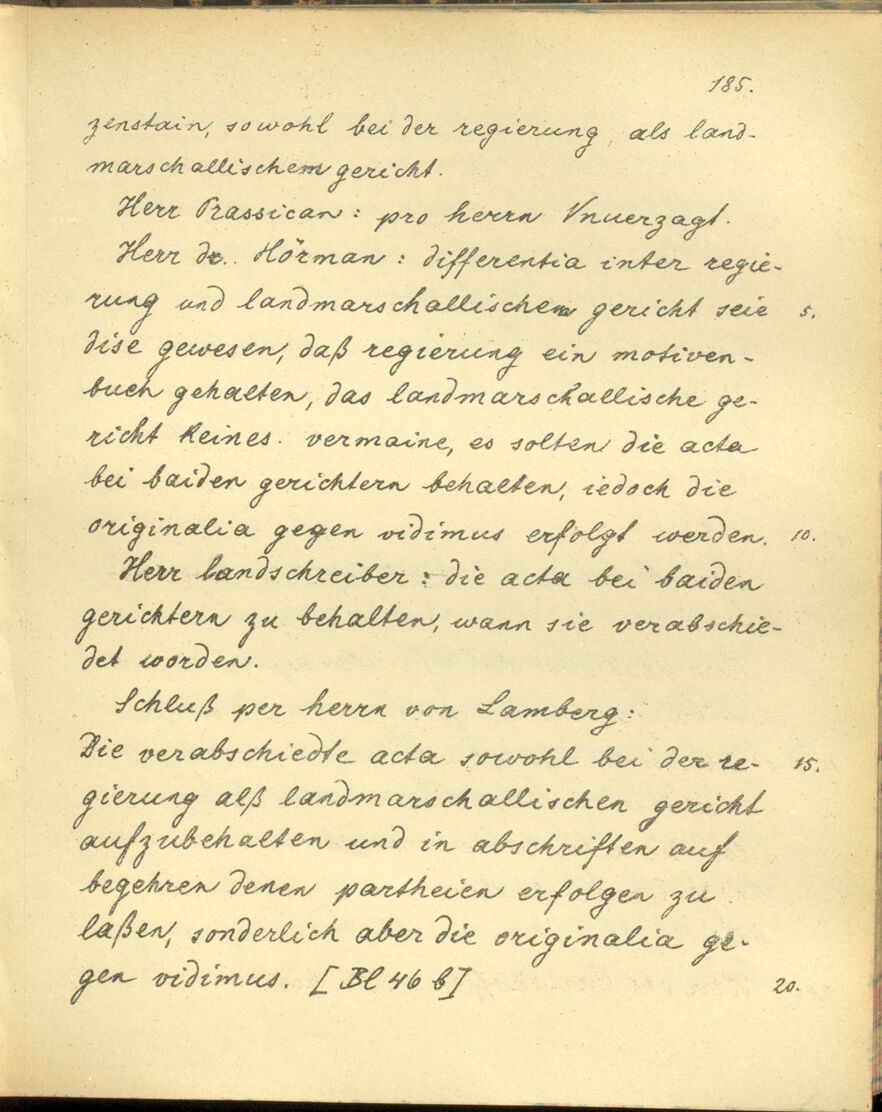 185.
zenstain, sowohl bei der regierung, als land-
marschallischem gericht.
Herr Prassican: pro herrn Vnuerzagt.
Herr dr. Hörman: differentia inter regie-
rung und landmarschallischem gericht seie 5.
dise gewesen, daß regierung ein motiven-
buch gehalten, das landmarschallische ge-
richt keines. vermaine, es solten die acta
bei baiden gerichtern behalten, iedoch die
originalia gegen vidimus erfolgt werden. 10.
Herr landschreiber: die acta bei baiden
gerichtern zu behalten, wann sie verabschie-
det worden.
Schluß per herrn von Lamberg:
Die verabschiedte acta sowohl bei der re- 15.
gierung alß landmarschallischen gericht
aufzubehalten und in abschriften auf
begehren denen partheien erfolgen zu
laßen, sonderlich aber die originalia ge-
gen vidimus. [Bl 46 b] 20.